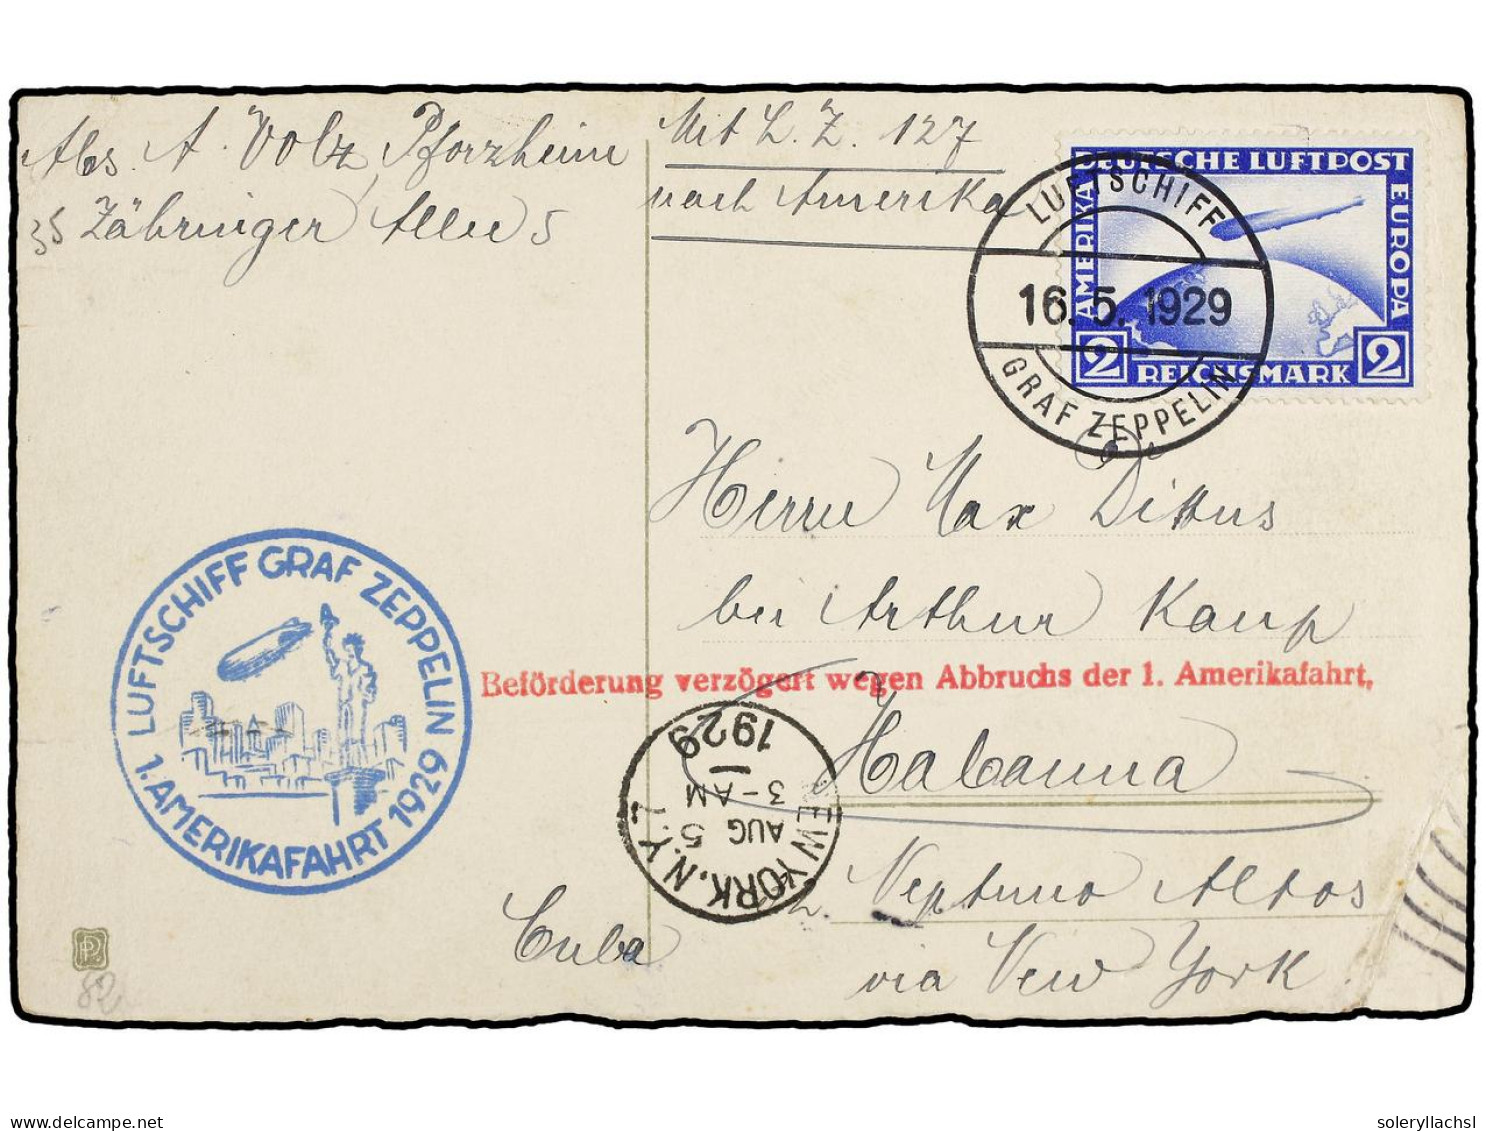 Abs. A. Volz, Pforzheim
35 Zähringer Allee 5
Mit L. Z. 127
nach Amerika
DEUTSCHE LUFTPOST
AMERIKA
EUROPA
2 REICHSMARK 2
LUFTSCHIFF
16.5.1929
GRAF ZEPPELIN
Herrn Max Dittus
bei Arthur Kaup
LUFTSCHIFF GRAF ZEPPELIN
1. AMERIKAFAHRT 1929
Beförderung verzögert wegen Abbruchs der 1. Amerikafahrt,
Habanna
NEW YORK, N.Y.
AUG 5
3-AM
1929
Neptuno Altos
Cuba
via New York.
82
delcampe.net
soleryllachsl